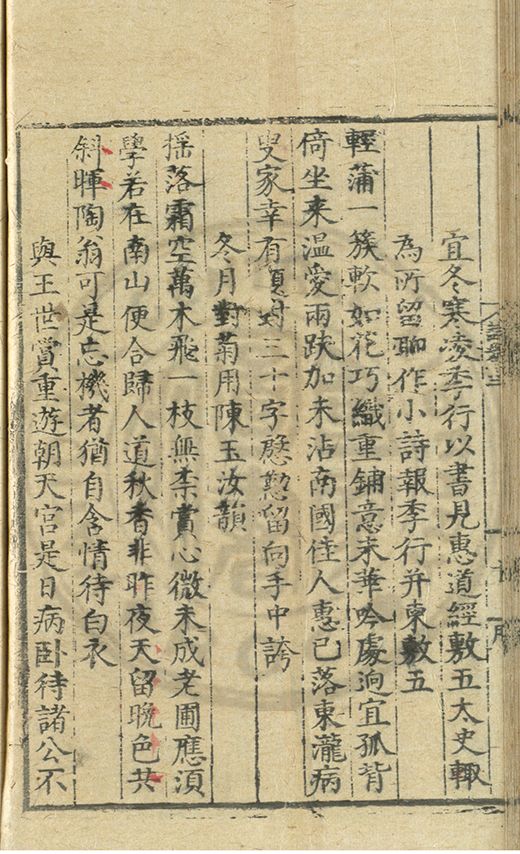 宜冬寒凌季行以書見惠道經敷五太史輙
為所留聊作小詩報季行并柬敷五
輕蒲一簇軟如花巧織重鋪意未華吟處逈宜孤背
倚坐来溫愛兩趺加未沾南國佳人惠已落東瀧病
叟家幸有頭對三十字慇懃留向手中誇
冬月對菊用陳玉汝韻
揺落霜空萬木飛一枝無柰賞心微未成老圃應須
學若在南山便合歸人道秋香非昨夜天留晚色共
斜暉陶翁可是忘機者猶自含情待白衣
與王世賞重遊朝天宮是日病卧待諸公不